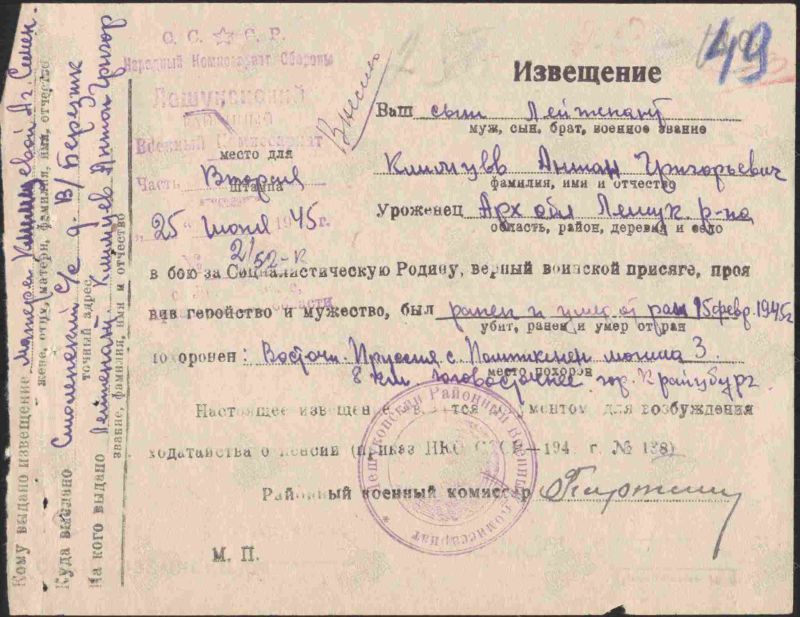 49
С. С. С. Р.
Народный Комиссариат Обороны
Лешуконский
Районный
Военный Комиссариат
место для
Часть Вторая
штампа
„25“ июня 1945г.
№ 2/52-к
Извещение
Ваш сын Лейтенант
муж, сын, брат, военное звание
Климцев Антон Григорьевич
фамилия, имя и отчество
Уроженец Арх обл Лешук. р-на
область, район, деревня и село
в бою за Социалистическую Родину, верный воинской присяге, проя
вив геройство и мужество, был ранен и умер от ран 15 февр. 1945г
убит, ранен и умер от ран
похоронен: Восточн. Пруссия с. могила 3.
место похорон
8 клм. юговосточнее гор. Крайцбург.
Настоящее извещение является документом для возбуждения
ходатайства о пенсии (приказ НКО СССР—194 г. № 138)
Районный военный комиссар
М. П.
Лешуконский Районный Военный Комиссариат
Кому выдано извещение матери Климцевой Аг. Семен.
жене, отцу, матери, фамилия, имя, отчество
Куда выслано Смоленский с/с д. В/Березник
точный адрес
На кого выдано Лейтенант Климцев Антон Григор
звание, фамилия, имя и отчество